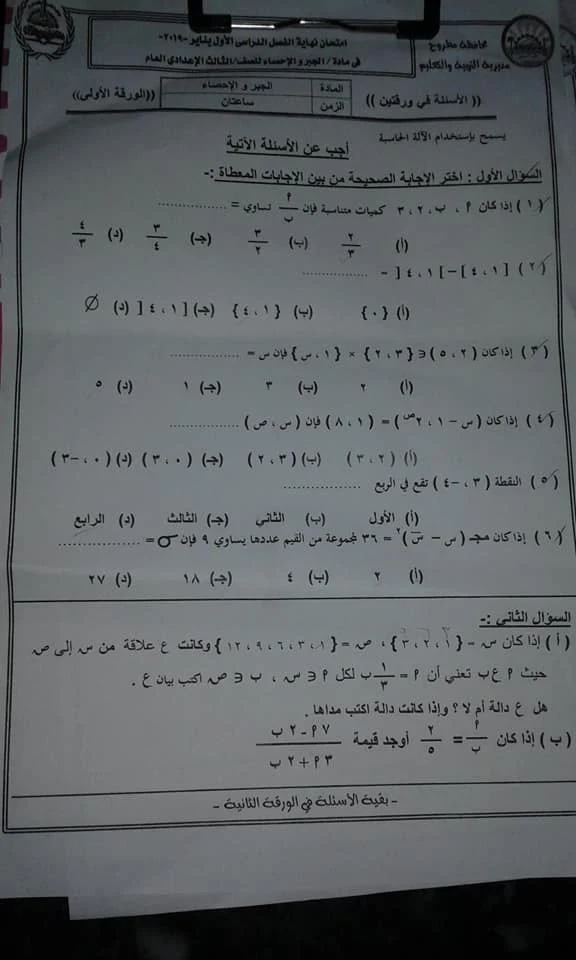 محافظة مطروح
مديرية التربية والتعليم
امتحان نهاية الفصل الدراسى الأول يناير -٢٠١٩-
فى مادة / الجبر و الإحصاء للصف/ الثالث الإعدادى العام
(( الأسئلة فى ورقتين ))
المادة الجبر و الإحصاء
الزمن ساعتان
((الورقة الأولى))
يسمح بإستخدام الآلة الحاسبة
أجب عن الأسئلة الآتية
السؤال الأول : اختر الإجابة الصحيحة من بين الإجابات المعطاة :-
( ١ ) إذا كان ٩ ، ب ، ٢ ، ٣ كميات متناسبة فإن ٩/ب تساوي = ..................
(أ) ٢/٣ (ب) ٣/٢ (جـ) ٣/٤ (د) ٤/٣
( ٢ ) [ ٤ ، ١ ] – ] ٤ ، ١ [ = ..................
(أ) { ٠ } (ب) { ٤ ، ١ } (جـ) [ ٤ ، ١ [ (د) ∅
( ٣ ) إذا كان ( ٢ ، ٥ ) ∈ { ٣ ، ٢ } × { ١ ، س } فإن س = ..................
(أ) ٢ (ب) ٣ (جـ) ١ (د) ٥
( ٤ ) إذا كان ( س – ١ ، ٢ص ) = ( ١ ، ٨ ) فإن ( س ، ص ) ..................
(أ) ( ٢ ، ٣ ) (ب) ( ٣ ، ٢ ) (جـ) ( ٠ ، ٣ ) (د) ( ٠ ، –٣ )
( ٥ ) النقطة ( ٣ ، –٤ ) تقع في الربع ..................
(أ) الأول (ب) الثاني (جـ) الثالث (د) الرابع
( ٦ ) إذا كان مجـ ( س – س̄ )٢ = ٣٦ لمجموعة من القيم عددها يساوي ٩ فإن σ = ..................
(أ) ٢ (ب) ٤ (جـ) ١٨ (د) ٢٧
السؤال الثاني :-
( أ ) إذا كان س = { ١ ، ٢ ، ٣ } ، ص = { ١ ، ٣ ، ٦ ، ٩ ، ١٢ } وكانت ع علاقة من س إلى ص
حيث ٩ ع ب تعني أن ٩ = ١/٣ ب لكل ٩ ∈ س ، ب ∈ ص اكتب بيان ع .
هل ع دالة أم لا ؟ وإذا كانت دالة اكتب مداها .
( ب ) إذا كان ٩/ب = ٢/٥ أوجد قيمة ٧ ٩ – ٢ ب / ٣ ٩ + ٢ ب
- بقية الأسئلة في الورقة الثانية -